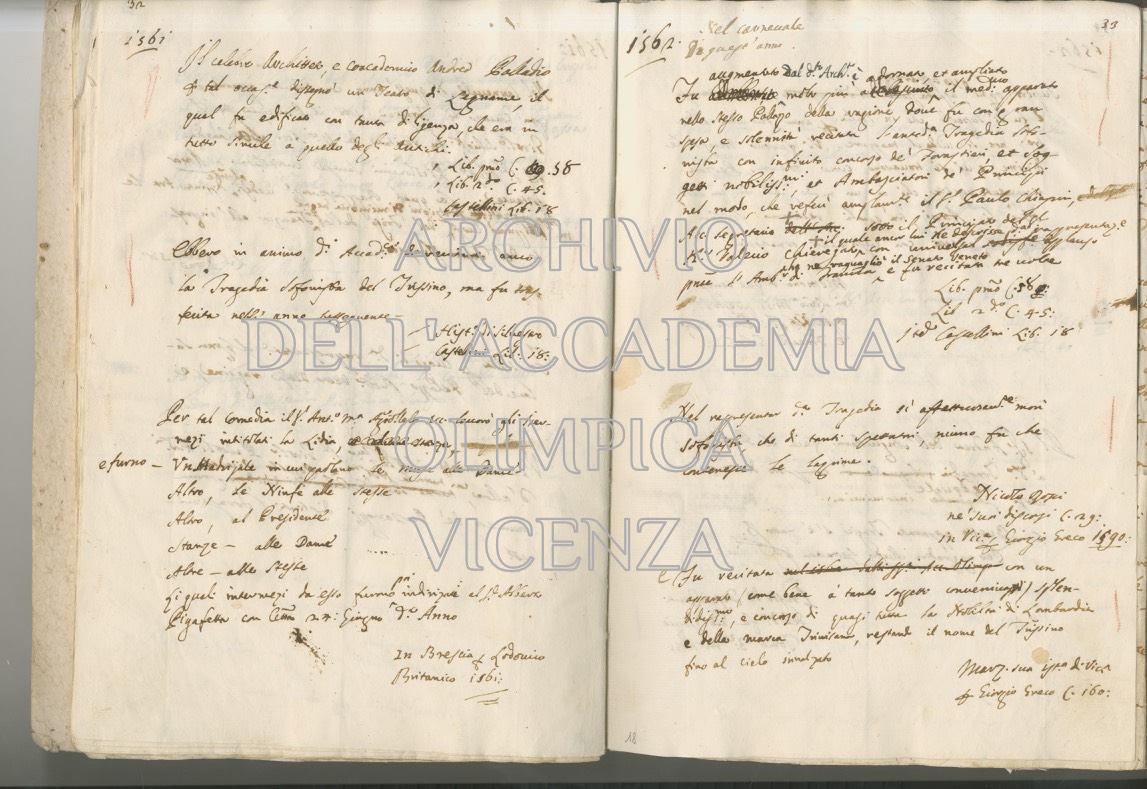 32
1561
Il celebre Architetto, e Concademico Andrea Palladio
p tal occas.e disegnò un Teatro di Legname il
qual fu edificato con tanta diligenza, che era in
tutto simile a quello degl'Antichi.
Lib. pmo C. 58
Lib. 2.do C. 45.
Castellini Lib. 18
Ebbero in animo d.i Accad.ci di recitar anco
la Tragedia Sofonisba del Trissino, ma fu tras-
ferita nell'anno susseguente
Castellini Lib. 18:
Per tal comedia il S.r Ant.o m.a lavorò gli Inter-
mezi intitolati la Lidia,
e furno — Un Madrigale in cui parlano le alle Dame
Altro, le Ninfe alle stesse
Altro, al Presidente
Stanze — alle Dame
Altre — alle stesse
Li quali intermezi da esso furno indirizati al S.r
Pigafetta con 27: Giugno d.o Anno
In Brescia p Lodovico
Britanico 1561:
33
1562.
Nel carnevale
di quest'anno.
augmentato dal d.to Arch.o è adornato, et ampliato
Fu molto più il med.mo apparato
nello stesso Palazzo della ragione dove fu con gran
spesa, e solennità recitata la Tragedia Sofo-
nisba con infinito concorso de' Forastieri, et Sog-
getti nobiliss.mi et Ambasciatori de' Principi
nel modo, che riferì il S.r Paulo Chiapin,
A.c. Segretario sotto il Principato del
K.r Valerio Chieregato con universal applauso
il quale anco lui
ne ragguagliò il Senato Veneto
e fu recitata tre volte
Lib. pmo C. 58
Lib 2.do C. 45:
Castellini Lib. 18
Nel representar d.a Tragedia si affettuosam.te morì
Sofonisba che di tanti spettatori, niuno fu che
contenesse le lagrime.
Nicolò Rossi
ne' suoi discorsi C. 29:
in Vic.za Giorgio Greco 1590:
Fu recitata con un
apparato (come bene a tanto soggetto conveniva) splen-
didiss.mo, e concorso di quasi tutta la Nobiltà di Lombardia
e della marca Trivisana, restando il nome del Trissino
fino al cielo inalzato
Marz. sua ist.a di Vic.a
p Giorgio Greco C. 160:
18
ARCHIVIO
DELL'ACCADEMIA
OLIMPICA
VICENZA